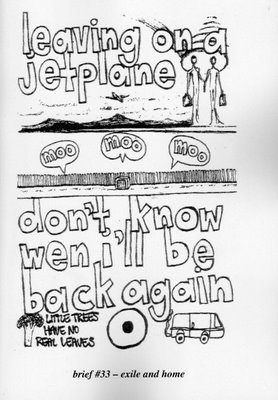 leaving on a
jetplane
moo moo moo
don't know
wen i'll be
back again
LITTLE TREES
HAVE NO
REAL LEAVES
brief #33 – exile and home